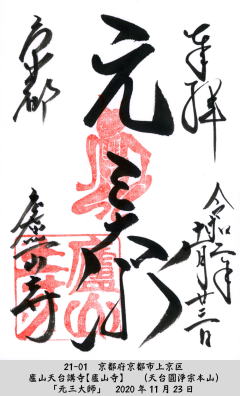 奉拝
令和二年
十一月廿三日
元三大師
京都
廬山寺
21-01 京都府京都市上京区
廬山天台講寺【廬山寺】 (天台圓淨宗本山)
「元三大師」 2020 年 11 月 23 日